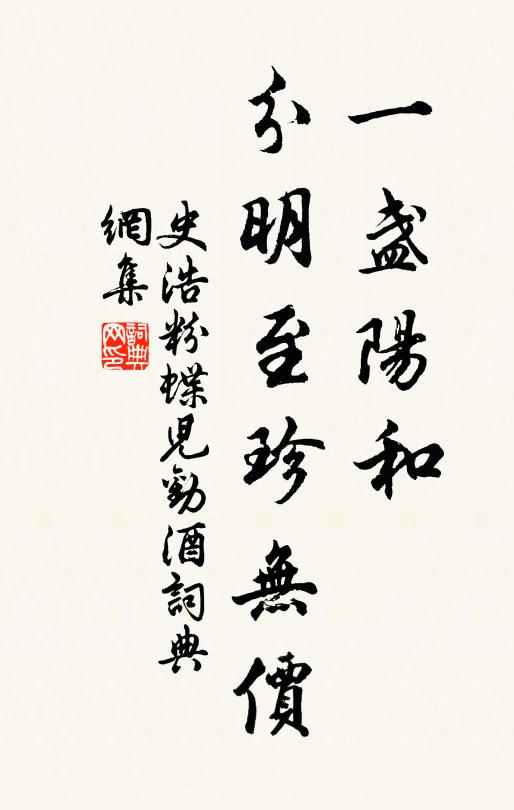 一盞陽和
分明至珍無價
史浩粉蝶兒勸酒詞典
網集
詞典
网印